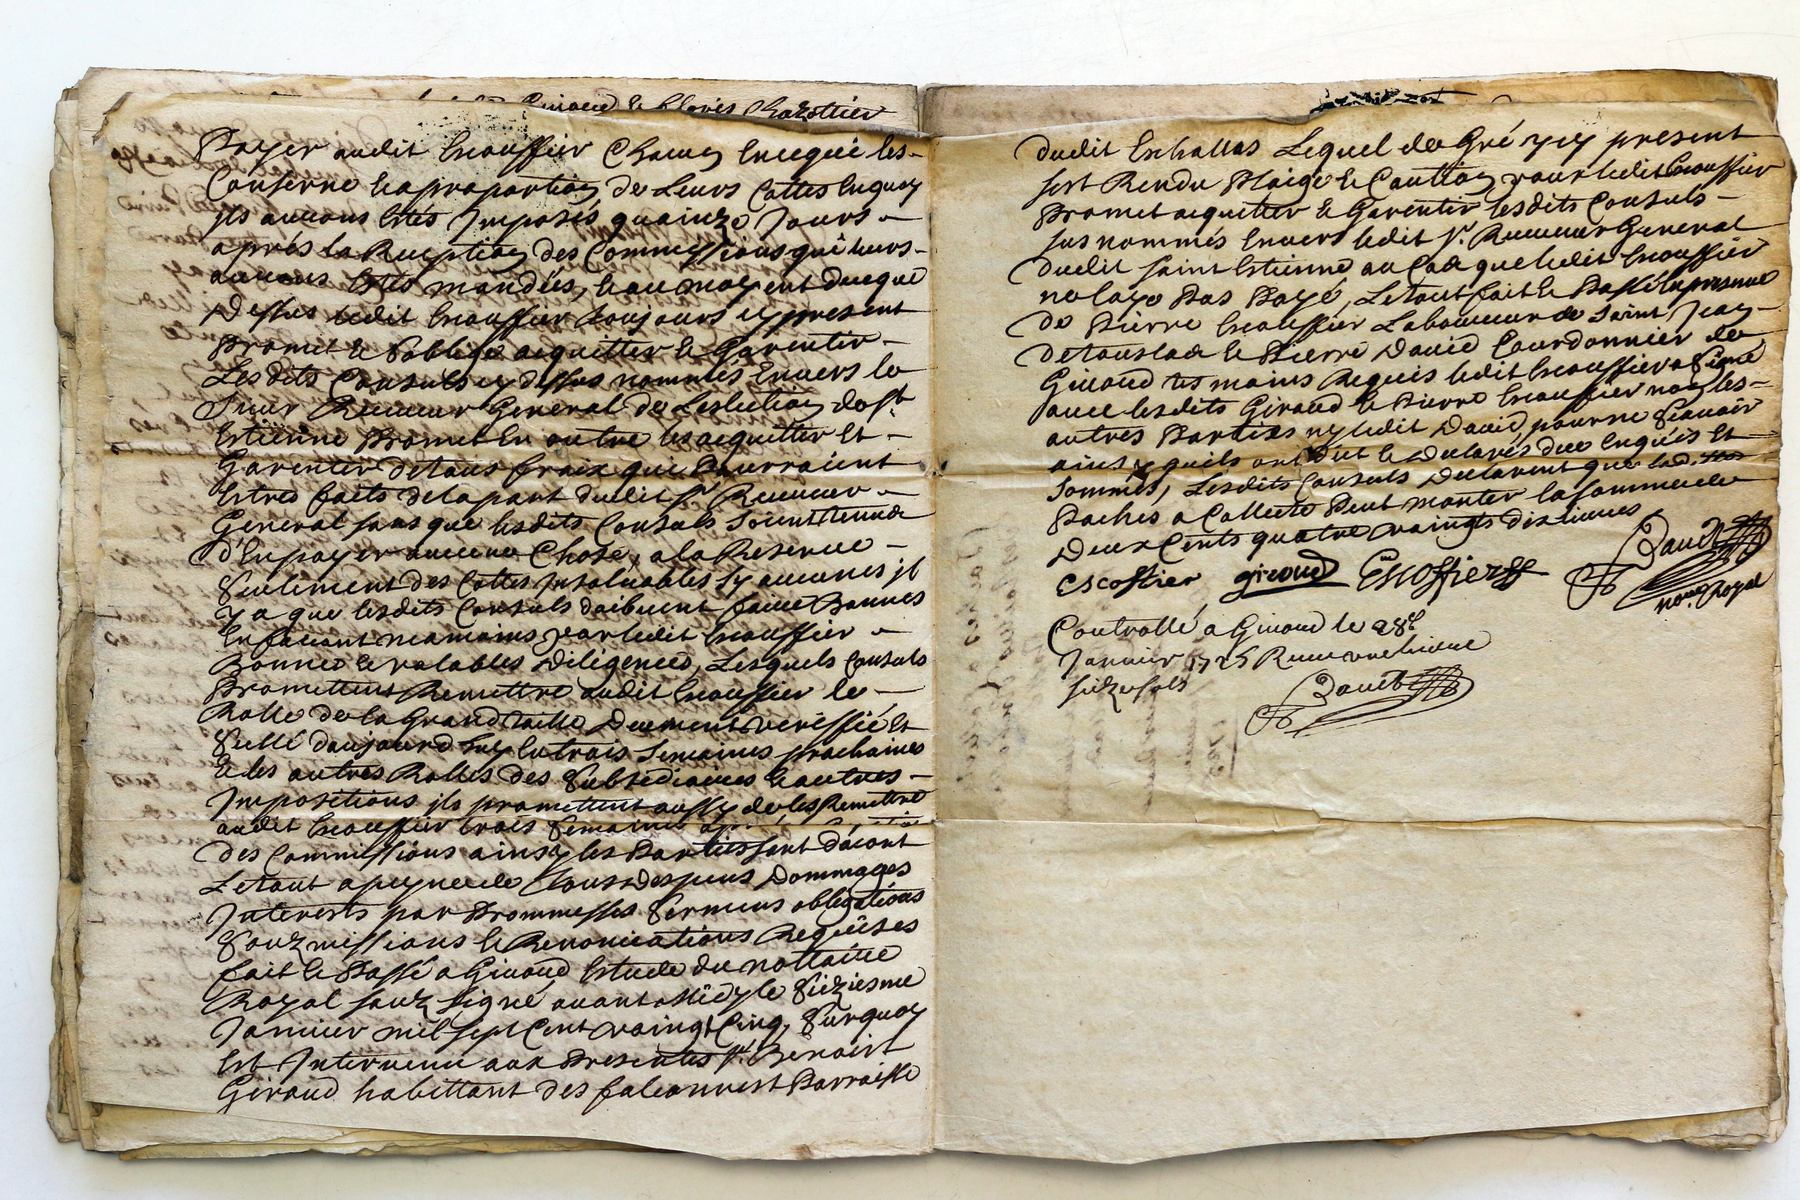 Giraud & Clovis Chazottier
Payer audit Escoffier Chacun En ce qui les
Conserne & a proportion de Leurs Cottes En quoy
jls auront Estés Jmposés quainze Jours
aprés la Reception des Commissions qui leurs
auront Estés mandées, & au moyent duc que
Dessus ledit Escoffier toujours icy present
Promet & soblige acquitter & Garentir
Lesdits Consuls cy dessus nommés Envers le
Sieur Receveur General de Leslection de st
Estienne Promet En outre les acquitter Et
Garentir de tous fraix qui Pourraient
Estres faits de la part dudit sr Receveur
General sans que lesdits Consuls soient tenus
d'En payer aucune Chose, a la Reserve
Seulement des Cottes Insolvables sy aucunes jl
y a que lesdits Consuls doibvent faire Bonnes
En faisant neamoins par ledit Escoffier
Bonnes & valables Diligences, Lesquels Consuls
Promettent Remettre audit Escoffier le
Rolle de la Grand taille Deument veriffié Et
Scellé d'aujourd huy En trois Semaines prochaines
& les autres Rolles des Subsediaires & autres
Jmpositions jls promettent aussy de les Remettre
audit Escoffier trois Semaines
des Commissions ainsy les Parties sont dácort
Le tout a peyne de tous despens Dommages
Interests par Prommesses Serments obligations
Soubzmissions & Renonciations Requises
fait & Passé a Giraud Estude du nottaire
Royal soubz signé avant midy le Sieziesme
Janvier mil sept Cent vaingt Cinq, Surquoy
Est Intervenu aux Presentes sr Benoist
Giraud habittant des falconnest Parroisse
dudit Eschallas Lequel de Gré icy present
sest Rendu Plaige & Caution pour ledit Escoffier
Promet acquitter & Garentir lesdits Consuls
sus nommés Envers ledit sr Receveur General
dudit saint Estienne au Cas que ledit Escoffier
ne laye Pas Payé, Le tout fait & Passé En presence
de Pierre Escoffier Laboureur de Saint Jean
de touslas & Pierre David Courdonnier de
Giraud tesmoins Requis ledit Escoffier a Signé
avec lesdits Giraud & Pierre Escoffier non les
autres Parties ny ledit David pour ne Scavoir
ainsy quils ont Dit & Declarés duc Enquis Et
Sommés, Lesdits Consuls Declarent que
a Collecte Peut monter la Somme de
Deux Cents quatre vaingts dix livres
Escoffier giroud Escoffier Baudt
nore Royal
Controllé a Giraud le 28e
Janvier 1725 Receu une livre
siezesols
Baudt